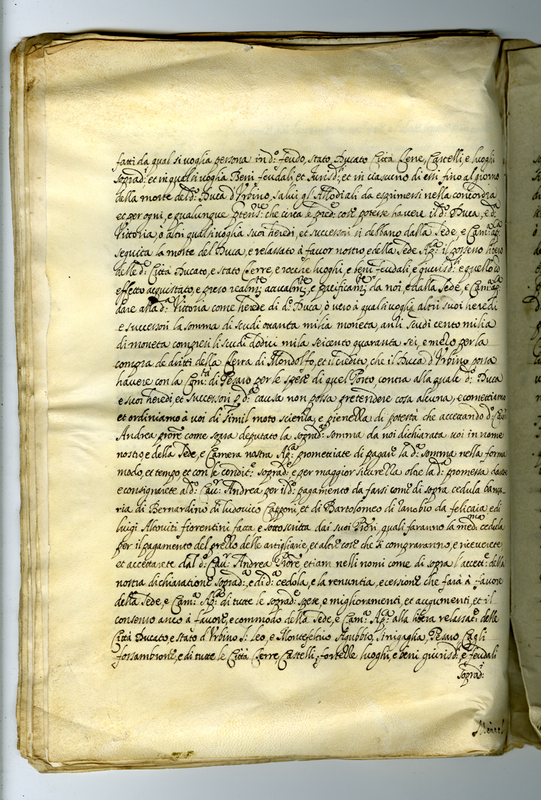 fatti da qual si voglia persona in d.º feudo, stato, Ducato Città Terre, Castelli, e luoghi
sopradⁱ et in qualsivoglia Beni feudali et Jurisdⁱ et in ciascuno di essi fino al giorno
della morte del d.º Duca d'Urbino, salvi gl'Allodiali da esprimersi nella concordia
et per ogni, e qualunque che circa le cose potesse havere il d.º Duca, e d.ª
Vittoria, ò altri qualsivoglia suoi heredi, et successori si debano dalla Sede, e Cam.ª
seguita la morte del Duca, e relassato à favor nostro e della Sede, Ap.ª il possesso libero
delle d.ᵉ Città Ducato, e stato Terre, e rocche luoghi, e beni feudali e giurisdⁱ e quello
effetto acquistato, e preso realmᵗᵉ attualmᵗᵉ, e pacificamᵗᵉ da noi, e dalla Sede, e Cam.ª
dare alla d.ª Vittoria come herede di d.º Duca, ò vero à qualsivoglia altri suoi heredi
e successori la somma di scudi ottanta milia moneta, anzi scudi cento milia
di moneta compresi li scudi dodici mila seicento quaranta sei, e mezo per la
compra de dritti della Terra di Mondolfo, et il credito, che il Duca d'Urbino possa
havere con la Com.ᵗà di Pesaro per le spese di quel Porto, contra alla quale d.º Duca
e suoi heredi et successori p d.ª causa non possa pretendere cosa alcuna, e commettiamo
et ordiniamo à voi di simil moto scienza, e pienezza di potestà che accettando d.º Cav.ʳ
Andrea fiore come sopra deputato la soprad.ª somma da noi dichiarata voi in nome
nostro e della Sede, e Camera nostra Ap.ª promettiate di pagare la d.ª somma nella forma
modo, et tempo et con le condit.ⁱ sopradⁱ e per maggior sicurezza oltre la d.ª promessa diate
e consigniate al d.º Cav.ʳ Andrea per il d.º pagamento da farsi come di sopra cedula banca
ria di Bernardino di Ludovico Capponi et di Bartolomeo di Zanobio da filicaia e di
Luigi Altoviti fiorentini fatta, e sottoscritta dai suoi quali faranno la medᵃ cedula
per il pagamento del prezzo delle artiglarie, et altre cose che si compraranno, e riceverete
et accettarete dal d.º Cav.ʳ Andrea fiore, etiam nelli nomi come di sopra l'accett.ᵉ della
nostra dichiaratione soprad.ª, e di d.ª cedola, e la renuntia, e cessione che farà à favore
della Sede, e Cam.ª Ap.ª di tutte le soprad.ᵉ spese, e miglioramenti, et augumenti, et il
consenso anco à favore, e commodo della Sede, e Cam.ª Ap.ª alla libera relassat.ᵉ delle
Città Ducato, e stato d'Urbino S. Leo, e Montefeltro Agubbio, Sinigaglia, Pesaro Cagli
fossambrone, e di tutte le Città Terre Castelli, fortezze luoghi, e beni giurisdⁱ e feudali
sopradⁱ